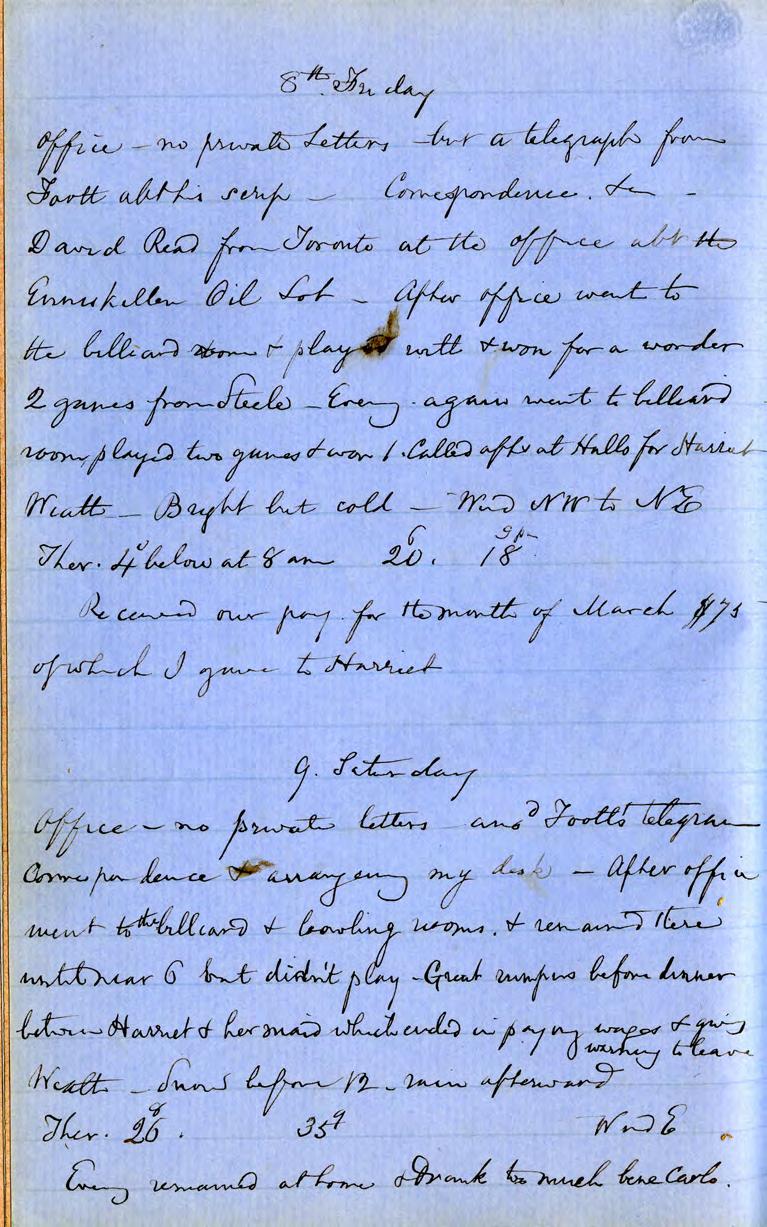 8th. Friday
Office - no private Letters - but a telegraph from
Foott abt his scrip - Correspondence. &c -
David Read from Toronto at the office abt the
Enniskillen Oil Lot - After office went to
the billiard room & played with & won for a wonder
2 games from Steele - Eveng. again went to billiard
room, played two games & won 1. Called after at Halls for Harriet
Weath - Bright but cold - Wind NW to NE
Ther. 4° below at 8 am 26. 9 pm 18°.
Received our pay for the month of March $75
of which I gave to Harriet
9. Saturday
Office - no private letters ansd Foott's telegram
Correspondence & arrangeing my desk - After office
went to the billiard & bowling rooms. & remained there
until near 6 but didn't play - Great rumpus before dinner
between Harriet & her maid which ended in paying wages & giving
warning to leave
Weath - Snow before 12 - rain afterward
Ther. 26. 35 9 Wind E
Eveng remained at home & Drank too much bene Carlo.